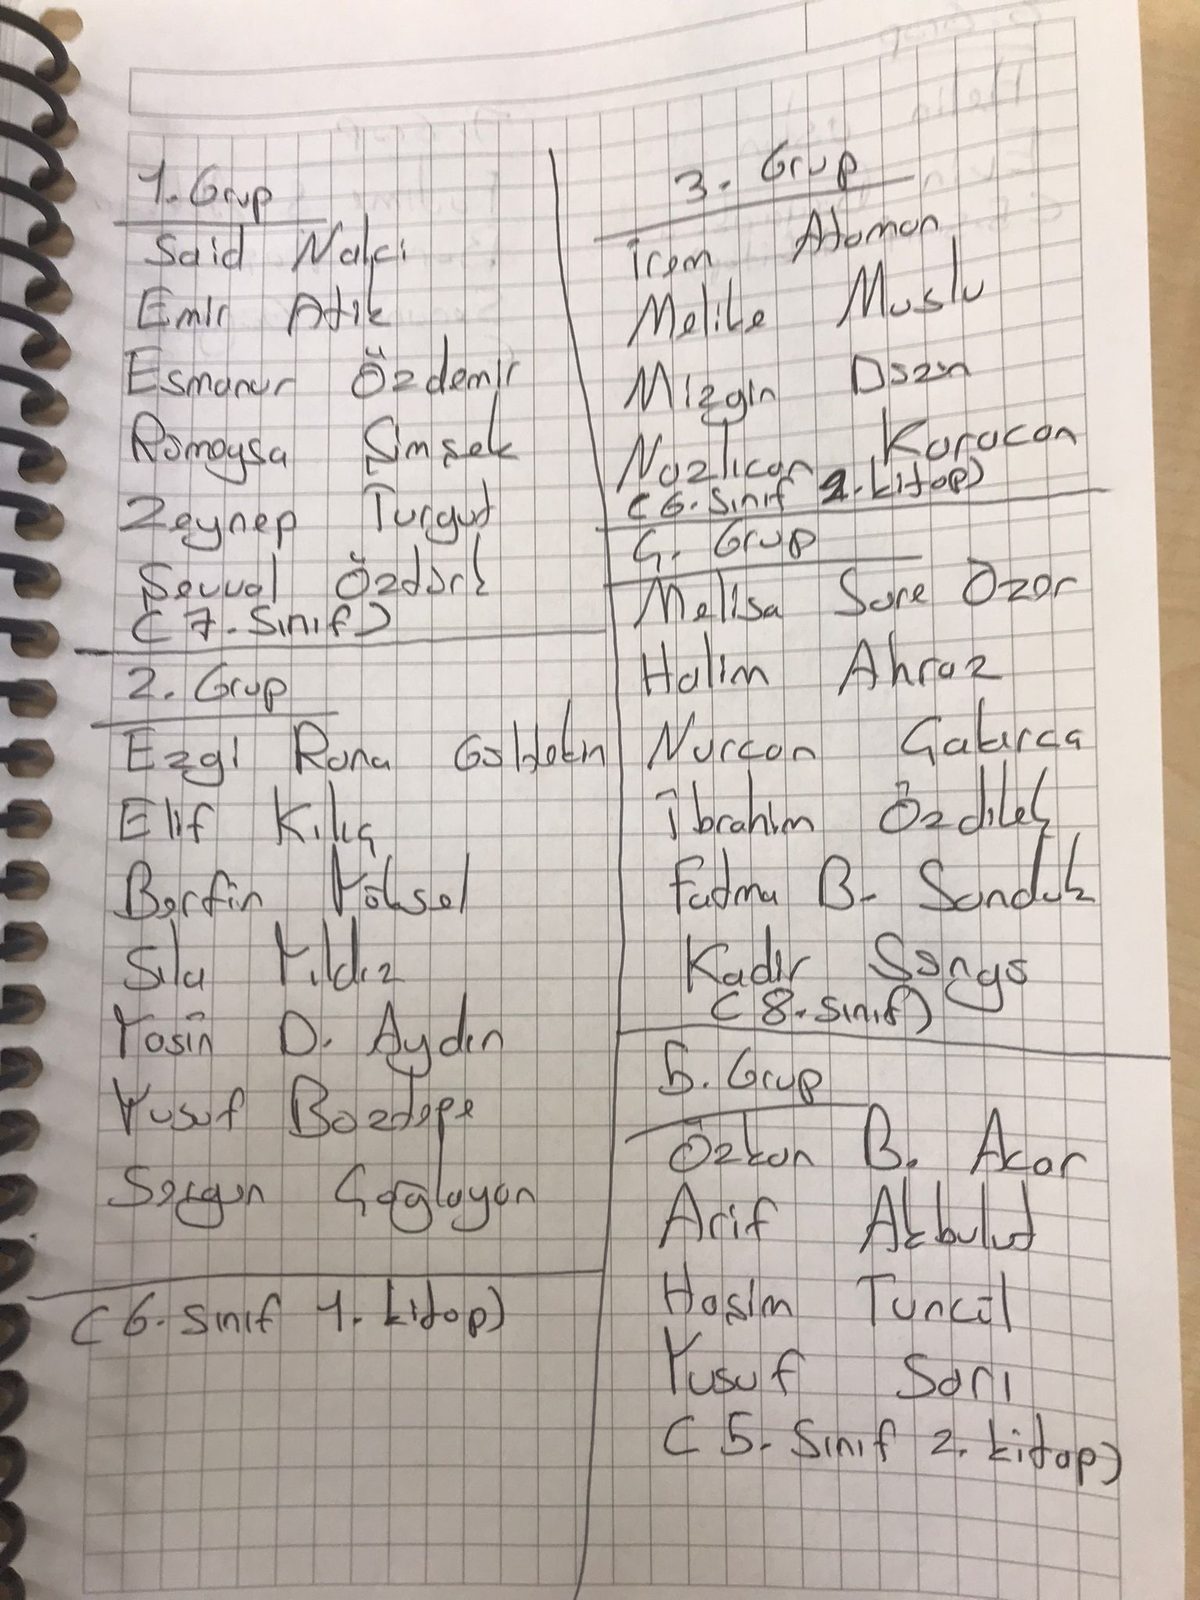 1. Grup
Said Nalçi
Emir Atik
Esmanur Özdemir
Rümeysa Şimşek
Zeynep Turgut
Şevval Öztürk
(7. Sınıf)
2. Grup
Ezgi Rana Gültekin
Elif Kılıç
Berfin Yüksel
Sıla Yıldız
Yasin D. Aydın
Yusuf Boztepe
Sezgin Çağlayan
(6. Sınıf 1. kitap)
3. Grup
İrem Ataman
Melike Muslu
Mizgin
Nazlıcan Karacan
(6. Sınıf 2. kitap)
4. Grup
Melisa Sare Özer
Halim Ahraz
Nurcan
İbrahim Özdilek
Fatma B. Sanduk
Kadir
(8. Sınıf)
5. Grup
Özkan B. Acar
Arif Akbulut
Haşim Tuncil
Yusuf Sarı
(5. Sınıf 2. kitap)